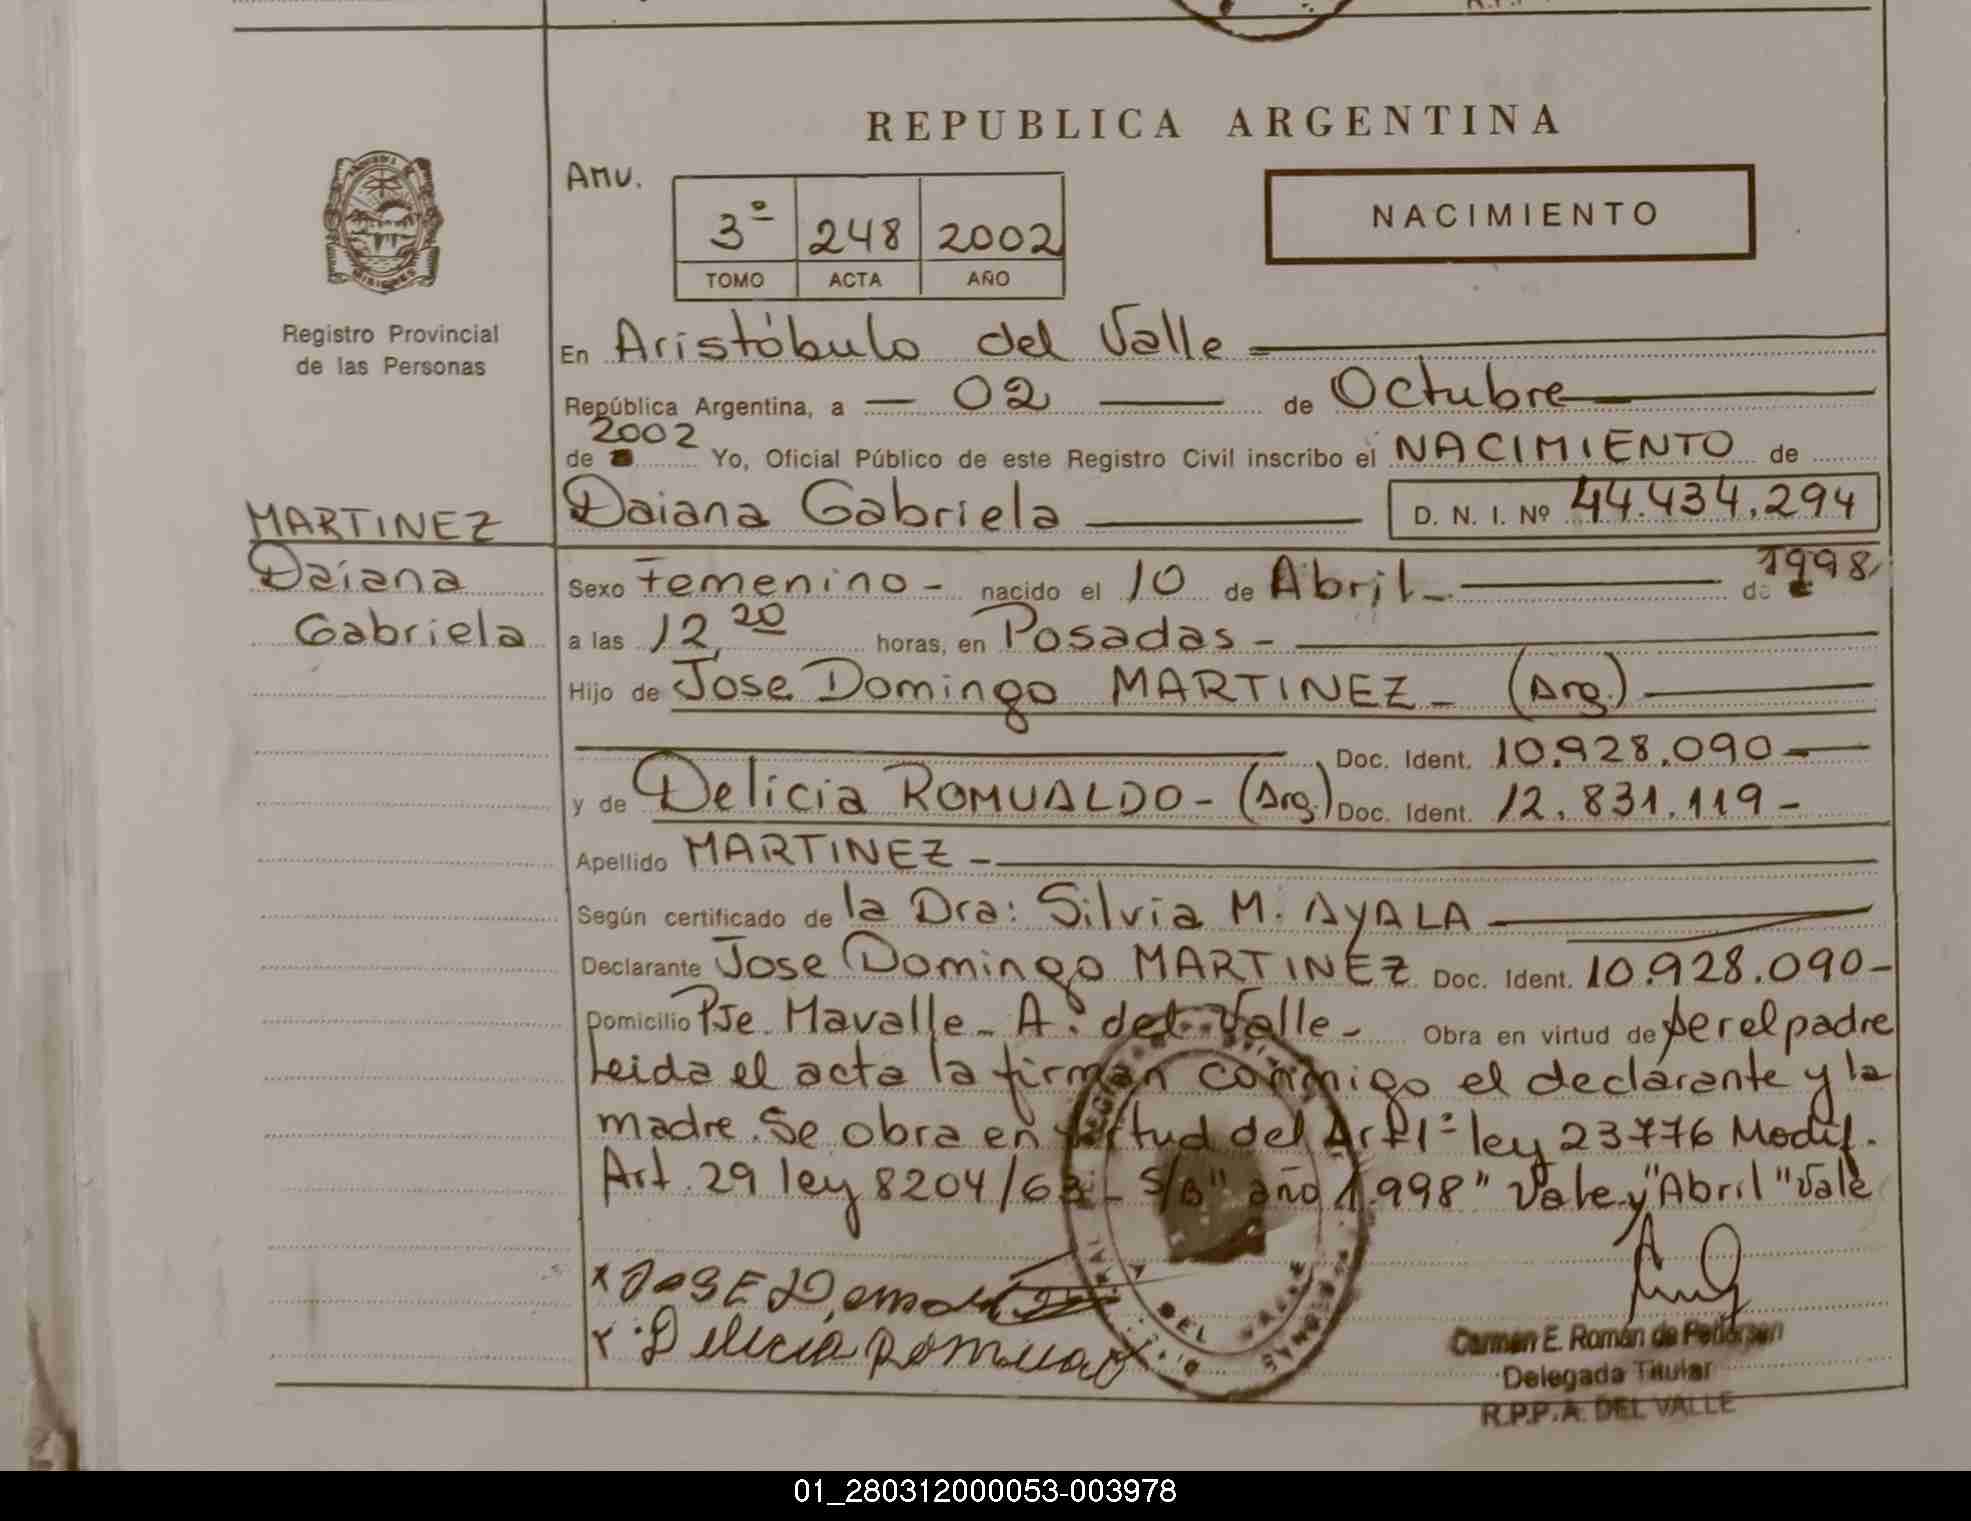 REPUBLICA ARGENTINA
Amv.
3º 248 2002
TOMO ACTA AÑO
NACIMIENTO
Registro Provincial
de las Personas
En Aristóbulo del Valle
República Argentina, a 02 de Octubre
de 2002 Yo, Oficial Público de este Registro Civil inscribo el NACIMIENTO de
MARTINEZ
Daiana
Gabriela
Daiana Gabriela D. N. I. Nº 44.434.294
Sexo Femenino - nacido el 10 de Abril - de 1998
a las 12,20 horas, en Posadas -
Hijo de Jose Domingo MARTINEZ - (Arg.)
Doc. Ident. 10.928.090 -
y de Delicia ROMUALDO - (Arg.) Doc. Ident. 12.831.119 -
Apellido MARTINEZ -
Según certificado de la Dra: Silvia M. AYALA
Declarante Jose Domingo MARTINEZ Doc. Ident. 10.928.090 -
Domicilio Pje. Mavalle - A. del Valle - Obra en virtud de ser el padre
Leida el acta la firman conmigo el declarante y la
madre. Se obra en virtud del Art 1º ley 23776 Modif.
Art. 29 ley 8204/63 - S/B " año 1.998" Vale y "Abril" Vale
x JOSE Domin
x Delicia Romualdo
DEL VALLE
Carmen E. Román de Pedersen
Delegada Titular
R.P.P.A. DEL VALLE
01_280312000053-003978